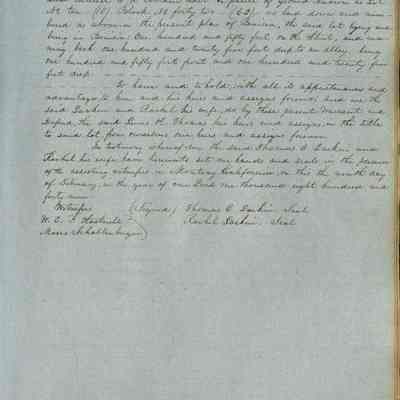 No. Ten (10) Block No. forty two (42) as laid down and num-
bered as above in the present plan of Benicia, the said lot lying and
being in Benicia One hundred and fifty feet on the Street, and run-
ning back one hundred and twenty five feet deep to an alley being
one hundred and fifty feet front and one hundred and twenty five
feet deep
to have and to hold, with all its appurtenances and
advantages to him and his heirs and assigns forever, and we the
said Larkin and Rachel his wife, do by these presents warrant and
defend, the said H. Thomas his heirs and assigns, in the title
to said lot from ourselves our heirs and assigns forever
In testimony whereof, we the said Thomas O. Larkin and
Rachel his wife have hereunto set our hands and seals in the presence
of the attesting witnesses in Monterey California, on this the day
of February, in the year of our Lord one thousand eight hundred and
forty nine
Witnesses (Signed) Thomas O. Larkin Seal
W. E. P. Hartnell Rachel Larkin Seal